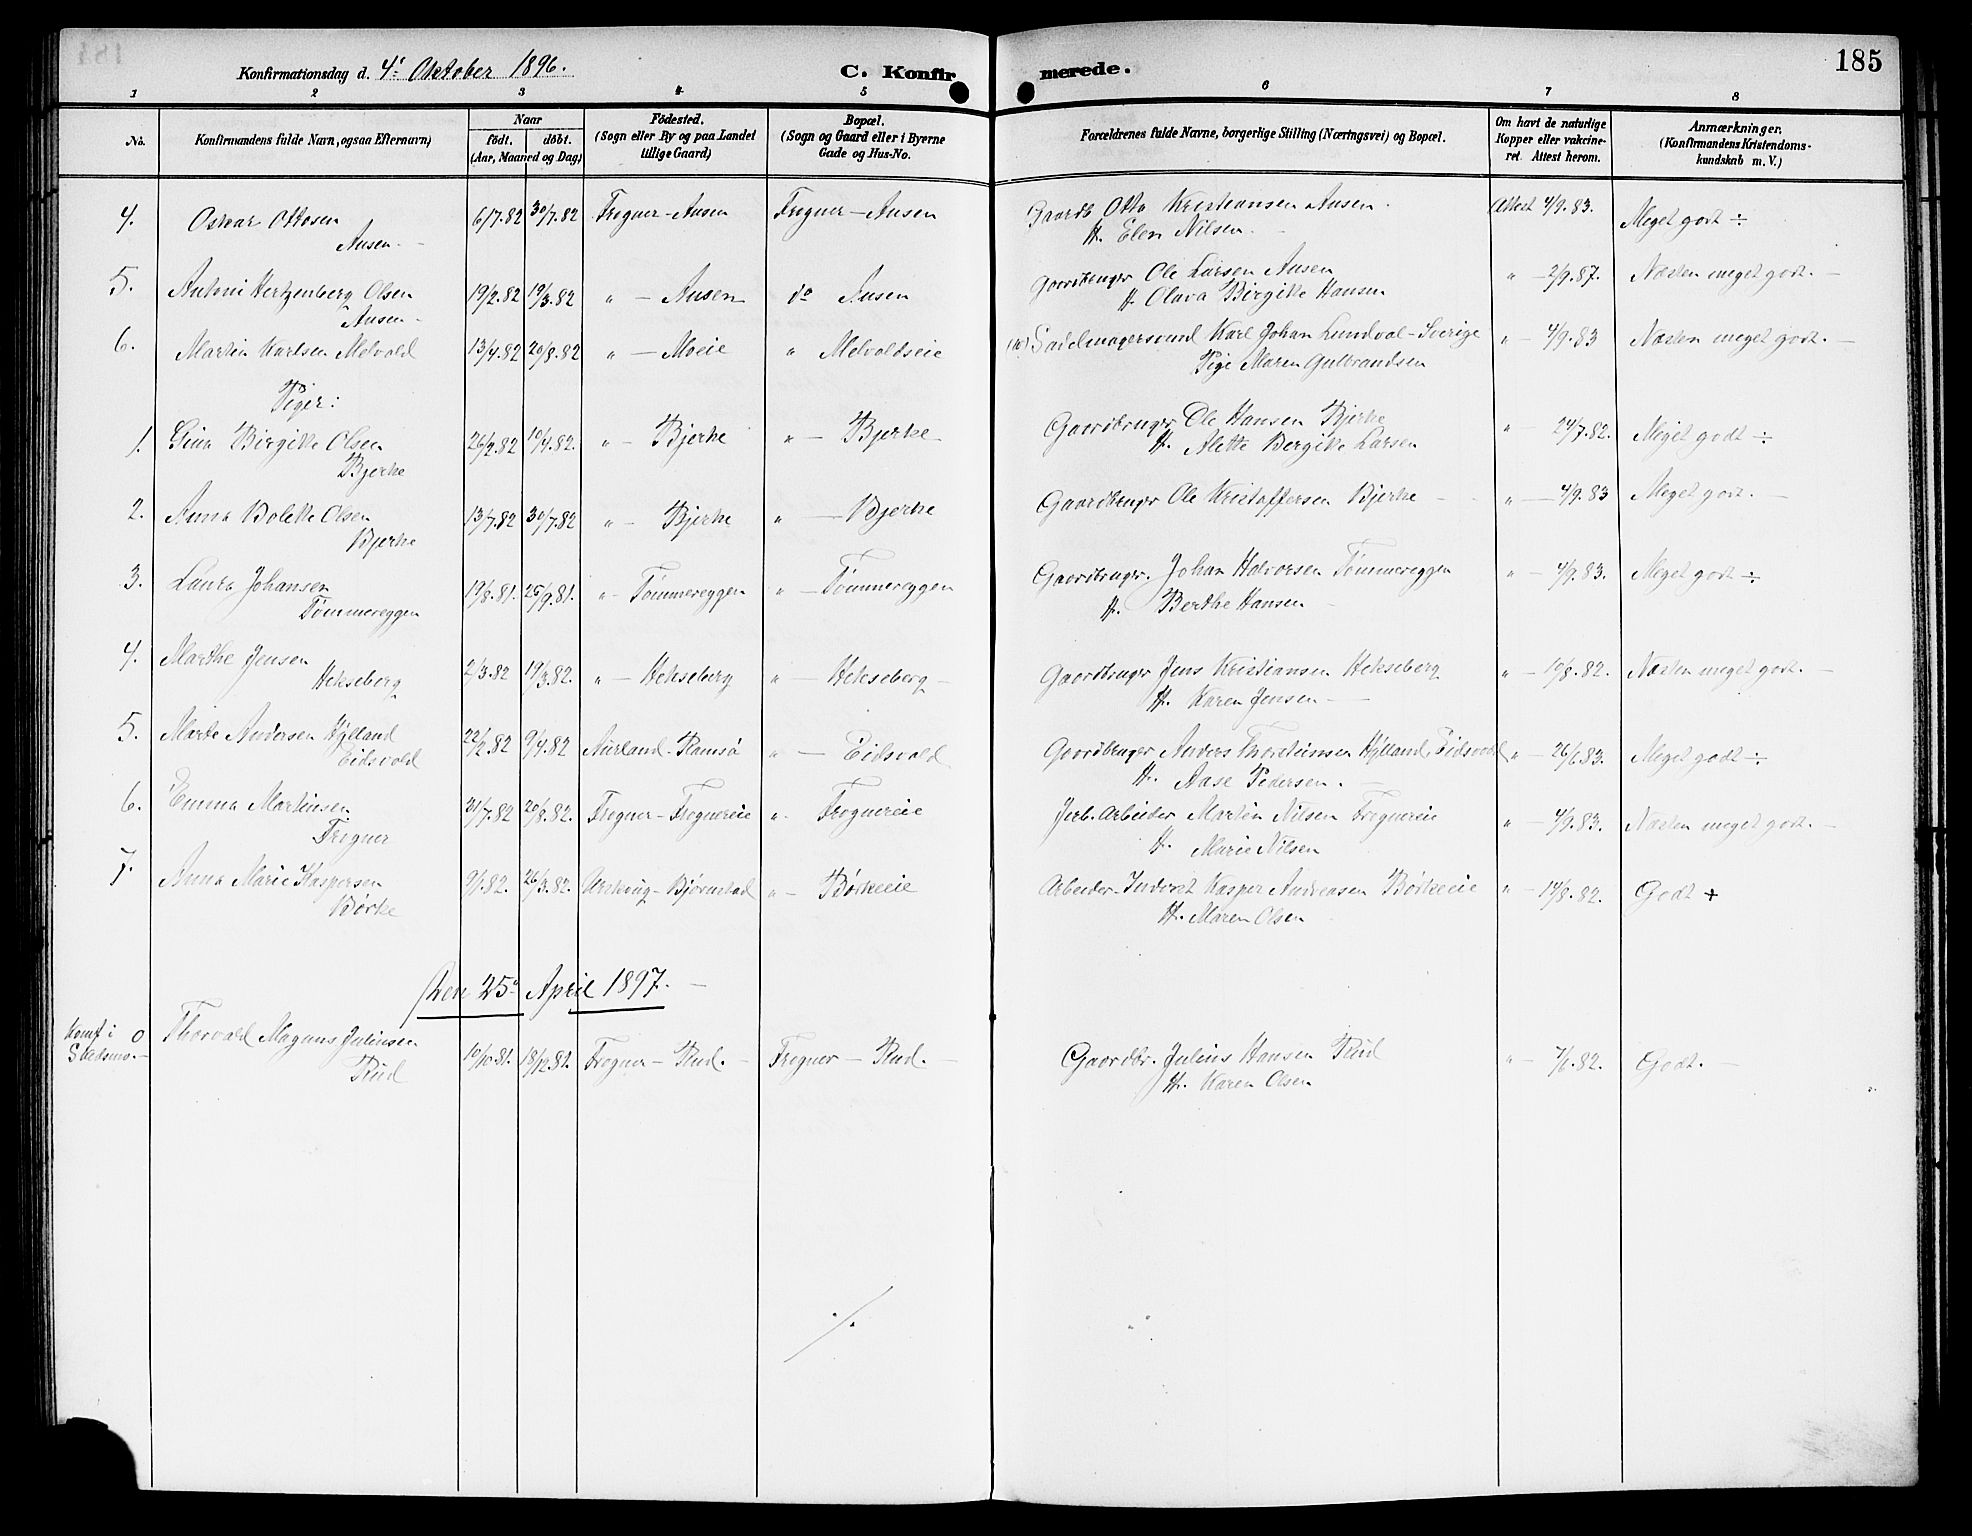 185
Konfirmationsdag d. 4' Oktober 1896. C. Konfirmerede.
1 2 3 4 5 6 7 8
No. Konfirmandens fulde Navn, ogsaa Efternavn) Naar født. døbt. (Aar, Maaned og Dag) Födested. (Sogn eller By og paa Landet tillige Gaard) Bopæl. (Sogn og Gaard eller i Byerne Gade og Hus-No. Forældrenes fulde Navne, borgerlige Stilling (Næringsvei) og Bopæl. Om havt de naturlige Kopper eller vakcineret. Attest herom. Anmærkninger. (Konfirmandens Kristendomskundskab m. V.)
4. Oskar Ottosen 6/7.82 30/7.82 Frogner - Ausen Frogner - Ausen Gaardb Otto Kristiansen Ausen. Attest 4/9.83. Meget godt ÷
Ausen. - H. Elen Nilsen. -
5. Antoni Hertzenberg Olsen 19/2.82 19/3.82 " - Ausen do Ausen Gaardbruger Ole Larsen Ausen " - 2/9.87. Næsten meget godt. -
Ausen - H. Olava Birgitte Hansen
6. Martin Karlsen Melvold 13/4.82 20/8.82 " - Moeie " Melvoldseie Sadelmagersvend Karl Johan Lundval - Sverige " - 4/9.83 Næsten meget godt. -
Pige Maren Gulbrandsen
Piger:
1. Gina Birgitte Olsen 26/2.82 10/4.82. " - Bjerke " - Bjerke Gaardbruger Ole Hansen Bjerke " - 24/7.82. Meget godt ÷
Bjerke H. Alette Bergitte Larsen
2. Anna Bolette Olsen 13/7.82 30/7.82 " - Bjerke " - Bjerke Gaardbruger Ole Kristoffersen Bjerke - " - 4/9.83 Meget godt. -
Bjerke
3. Laura Johansen 19/8.81. 25/9.81. " - Tømmereggen " - Tømmereggen Gaardbruger. Johan Halvorsen Tømmereggen " - 4/9.83. Meget godt ÷
Tømmereggen H. Berthe Hansen -
4. Marthe Jensen 2/3.82 19/3.82. " - Hekseberg " - Hekseberg - Gaardbruger Jens Kristiansen Hekseberg " - 10/8.82. Næsten meget godt. -
Hekseberg H. Karen Jensen -
5. Marte Andersen Hylland 22/2.82 9/4.82 Aurland - Ramsö " - Eidsvold Gaardbruger Anders Thorsteinsen Hylland, Eidsvold " - 26/6.83. Meget godt ÷
Eidsvold H. Aase Pedersen.
6. Emma Martinsen 31/7.82 20/8.82. Frogner - Frognereie " - Frognereie Jerb. Arbeider Martin Nilsen Frognereie " - 4/9.83. Næsten meget godt. -
Frogner H. Marie Nilsen
7. Anna Marie Kaspersen 9/1.82. 26/3.82. Urskoug - Bjørnstad " - Børkeeie Arbeider - Inderst Kasper Andreasen Børkeeie " - 14/8.82. Godt +
Børke H. Maren Olsen
Den 25' April 1897. -
Konf i Skedsmo. - 0 Thorvald Magnus Juliussen 10/10.81. 18/12.81. Frogner - Rud. - Frogner - Rud. - Gaardbr. Julius Hansen Rud " - 7/6.82. Godt. -
Rud H. Karen Olsen
./.